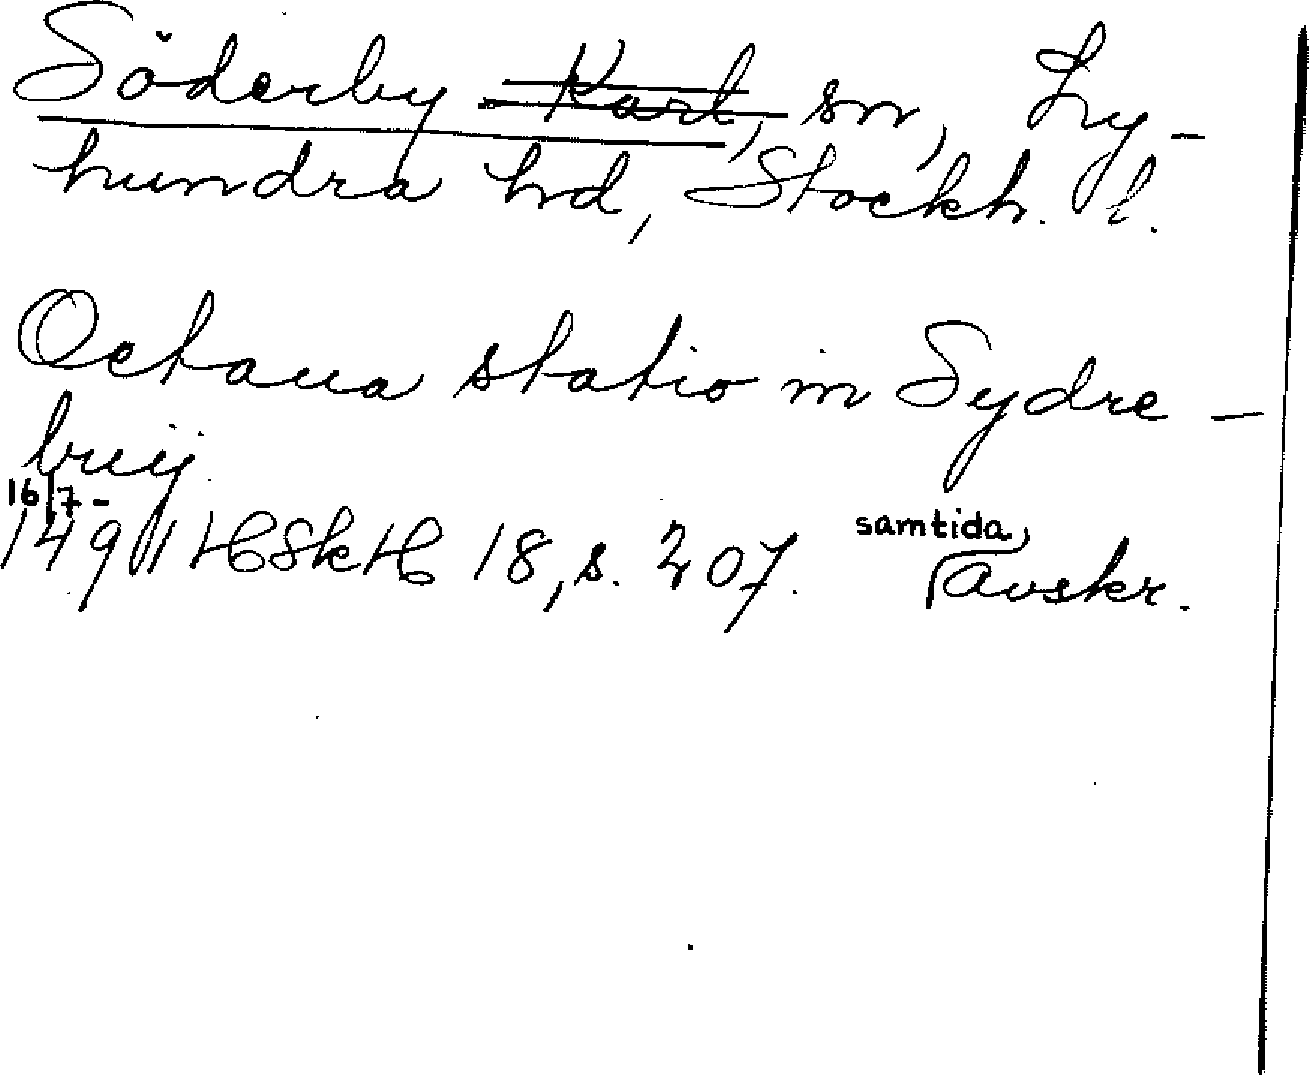 Söderby Karl, sn, Ly-
hundra hd, Stockh. l.
Octaua statio in Sydre-
buij
16/7-
1491 HSkH 18, s. 207. samtida avskr.